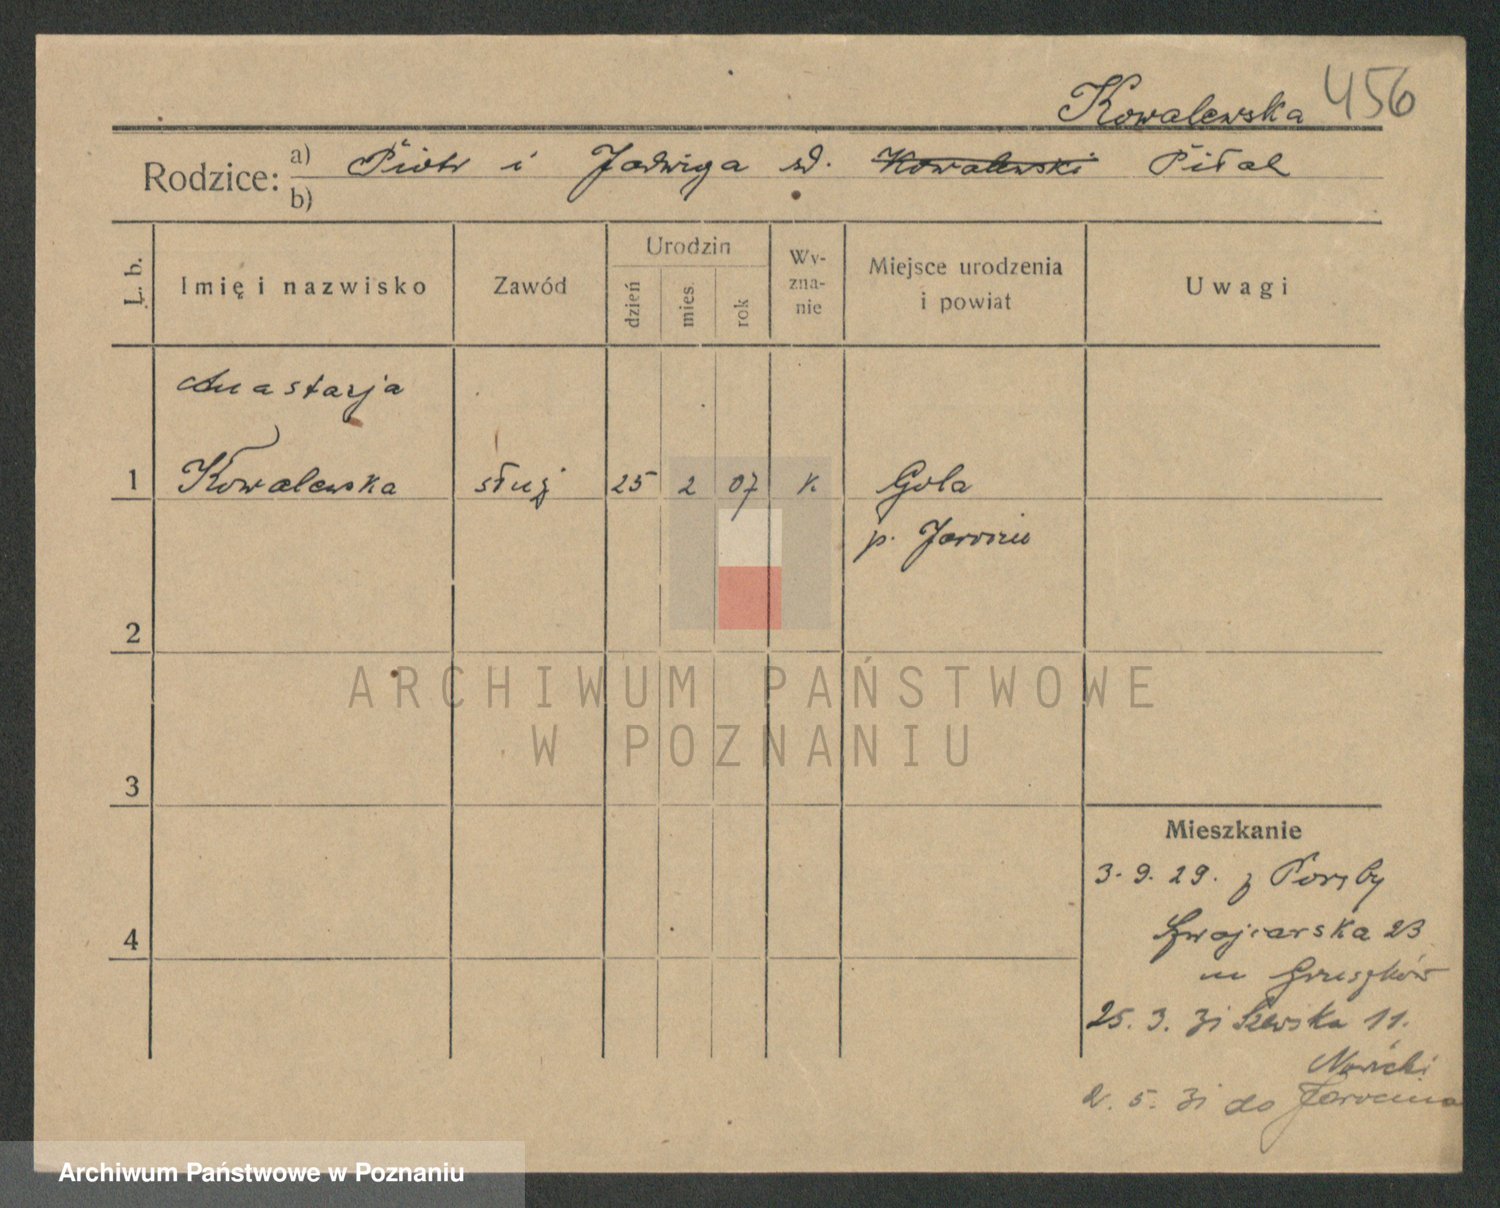 Kowalewska 456
Rodzice: a) Piotr i Jadwiga zd. Kowalewski Pitał
b)
L. b.
Imię i nazwisko
Zawód
Urodzin
dzień
mies.
rok
Wy-
zna-
nie
Miejsce urodzenia
i powiat
Uwagi
Anastazja
1 Kowalewska służ 25 2 07 k. Gola
p. Jarocin
2
3
4
Mieszkanie
3. 9. 29. z Poręby
Szwajcarska 23
m
25. 3. 31 Szewska 11.
Nowicki
2. 5. 31 do Jarocina
ARCHIWUM PAŃSTWOWE
W POZNANIU
Archiwum Państwowe w Poznaniu